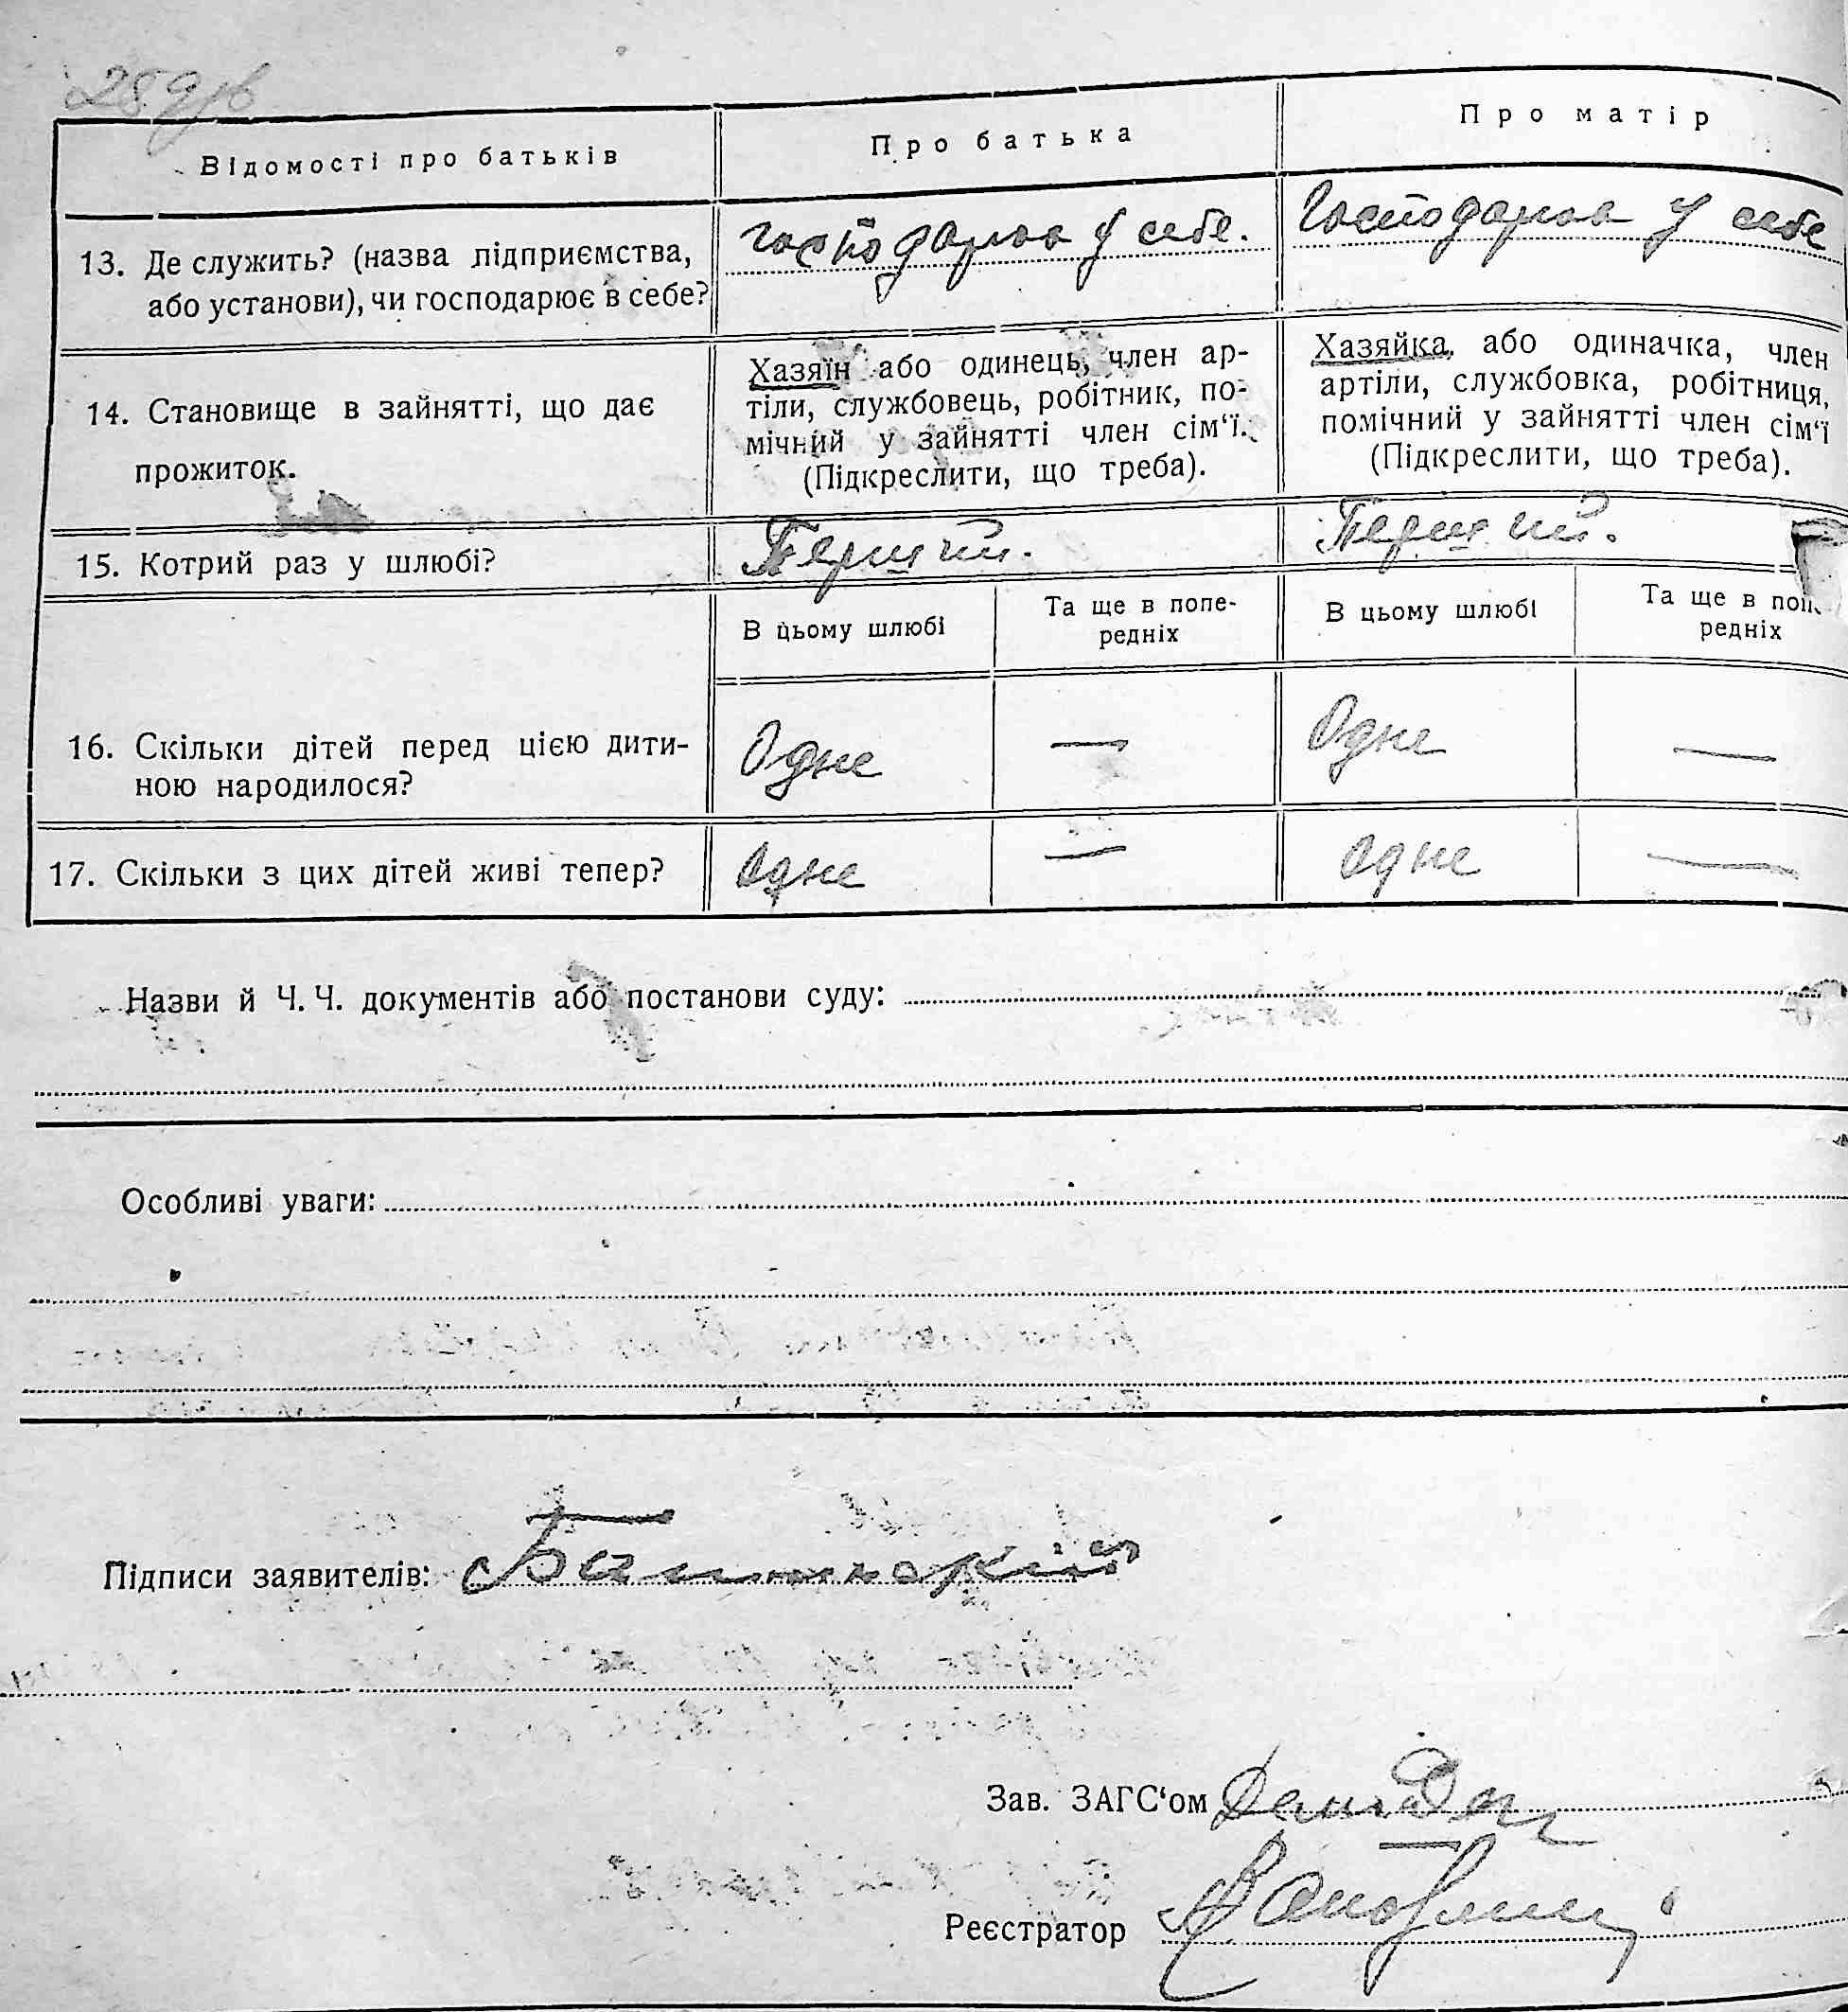 Відомості про батьків
Про батька
Про матір
13. Де служить? (назва підприємства,
або установи), чи господарює в себе?
господарює у себе.
Господарює у себе
14. Становище в зайнятті, що дає
прожиток.
Хазяїн або одинець, член ар-
тіли, службовець, робітник, по-
мічний у зайнятті член сім‘ї.
(Підкреслити, що треба).
Хазяйка, або одиначка, член
артіли, службовка, робітниця,
помічний у зайнятті член сім‘ї
(Підкреслити, що треба).
15. Котрий раз у шлюбі?
Перший.
Перший.
В цьому шлюбі
Та ще в попе-
редніх
В цьому шлюбі
Та ще в попе-
редніх
16. Скільки дітей перед цією дити-
ною народилося?
Одне
—
Одне
—
17. Скільки з цих дітей живі тепер?
Одне
—
Одне
—
Назви й Ч. Ч. документів або постанови суду:
Особливі уваги:
Підписи заявителів:
Зав. ЗАГС‘ом
Реєстратор